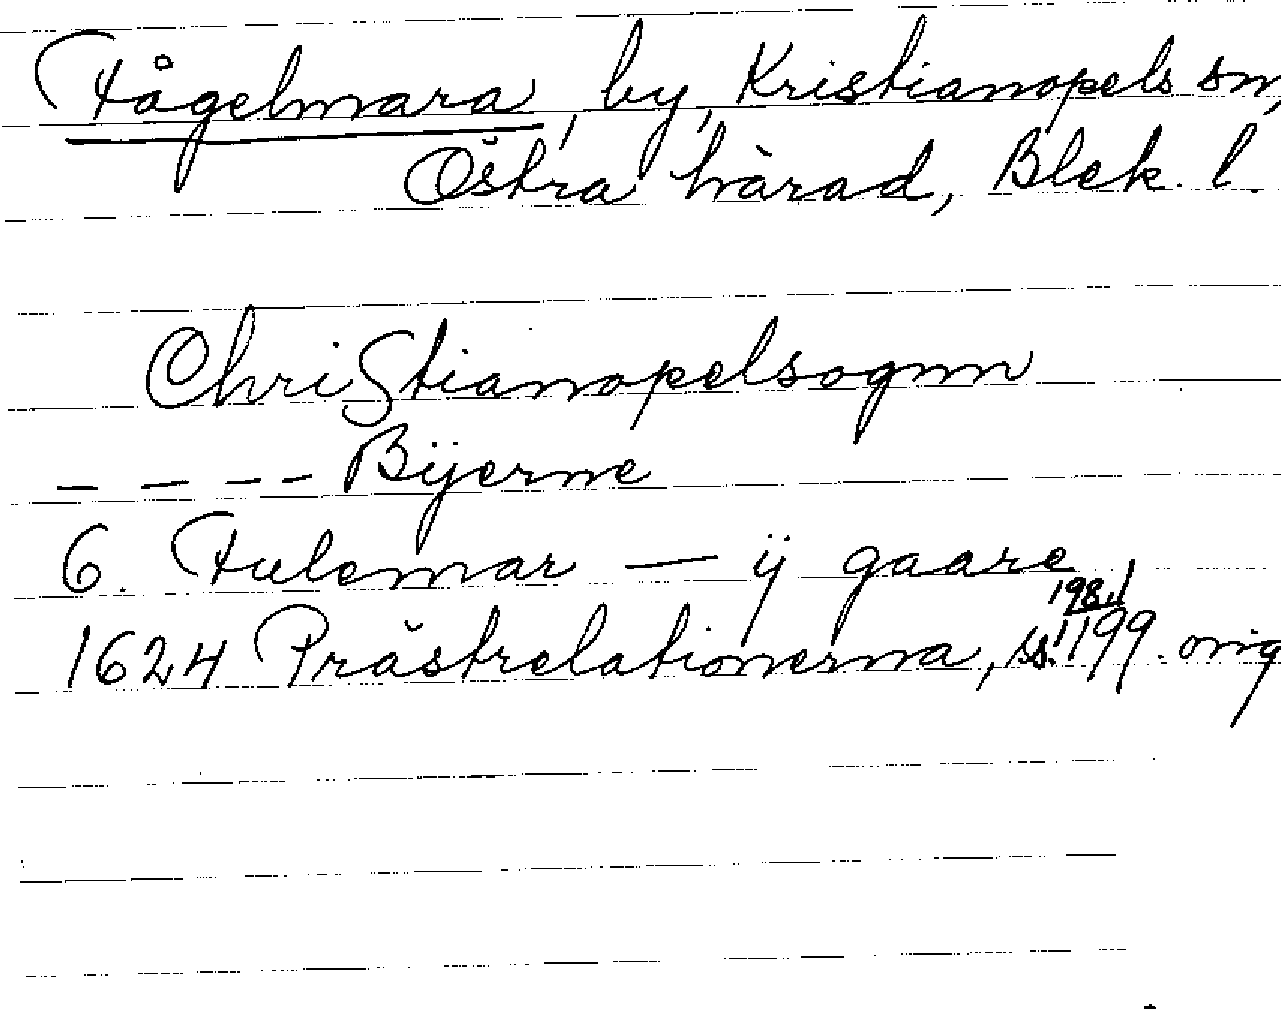 Fågelmara, by, Kristianopels sn,
Östra härad, Blek. l.
Christianopelsognn
- - - - Bÿerne
6. Fulemar — ij gaare
1624 Prästrelationerna, ss. 198, 199. orig